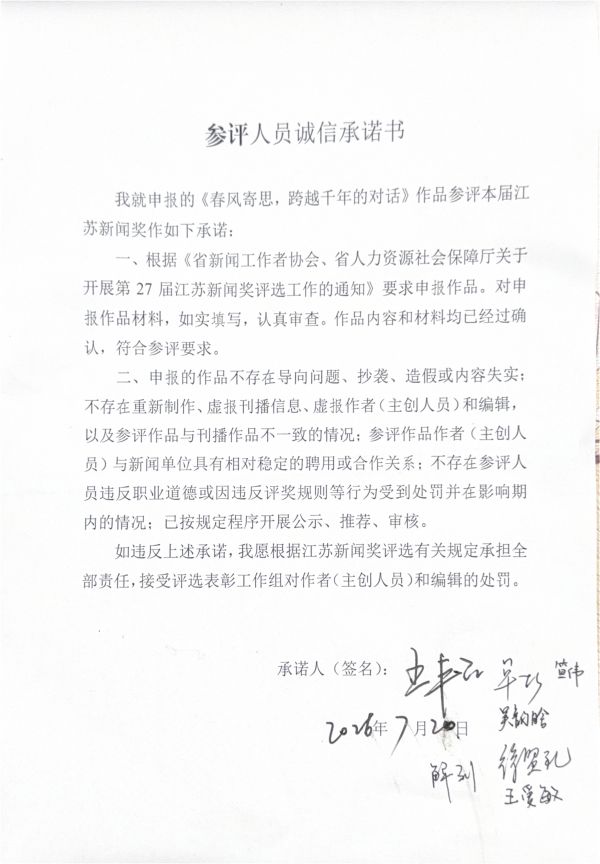 参评人员诚信承诺书
我就申报的《春风寄思，跨越千年的对话》作品参评本届江
苏新闻奖作如下承诺：
一、根据《省新闻工作者协会、省人力资源社会保障厅关于
开展第 27 届江苏新闻奖评选工作的通知》要求申报作品。对申
报作品材料，如实填写，认真审查。作品内容和材料均已经过确
认，符合参评要求。
二、申报的作品不存在导向问题、抄袭、造假或内容失实；
不存在重新制作、虚报刊播信息、虚报作者（主创人员）和编辑，
以及参评作品与刊播作品不一致的情况；参评作品作者（主创人
员）与新闻单位具有相对稳定的聘用或合作关系；不存在参评人
员违反职业道德或因违反评奖规则等行为受到处罚并在影响期
内的情况；已按规定程序开展公示、推荐、审核。
如违反上述承诺，我愿根据江苏新闻奖评选有关规定承担全
部责任，接受评选表彰工作组对作者（主创人员）和编辑的处罚。
承诺人（签名）：
2026年 7月20日
王溪敏